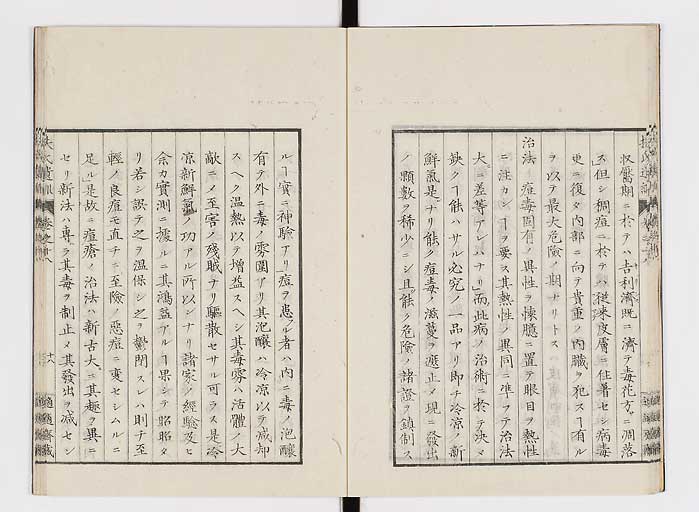 収靨期ニ於テハ吉利濟既ニ濟テ毒花方ニ凋落
ス但シ稠痘ニ於テハ從來皮膚ニ住著セシ病毒
更ニ復タ内部ニ向テ貴重ノ内臓ヲ犯スヿ有ル
ヲ以テ最大危險ノ期ナリトス
治法 痘毒固有ノ異性ヲ懐臆ニ置テ眼目ヲ熱性
ニ注カンヿヲ要ス其熱性ノ異同ニ準フテ治法
大ニ差等アレハナリ而此病ノ治術ニ於テ決メ
缺クヿ能ハサル必究ノ一品アリ即チ冷凉ノ新
鮮氣是ナリ能ク痘毒ノ滋蔓ヲ遮止メ現ニ發出
ノ顆數ヲ稀少ニシ且能ク危險ノ諸證ヲ鎮制ス
ルヿ實ニ神驗アリ痘ヲ患フル者ハ内ニ毒ノ泡釀
有テ外ニ毒ノ雰圍アリ其泡釀ハ冷凉以テ減却
スヘク温熱以テ增益スヘシ其毒雰ハ活體ノ大
敵ニノ至害ノ殘賊ナリ驅散セサル可ラス是冷
凉新鮮氣ノ功アル所以ナリ諸家ノ經驗及ヒ
余カ實測ニ據ルニ其鴻益アルヿ果シテ昭昭タ
リ若シ誤テ之ヲ温保シ之ヲ鬱閉スレハ則チ至
輕ノ良痘モ直チニ至險ノ惡痘ニ変セシムルニ
足ル是故ニ痘瘡ノ治法ハ新古大ニ其趣ヲ異ニ
セリ新法ハ專ラ其毒ヲ制止メ其發出ヲ減セン
卷之十八
十八
適適齋藏